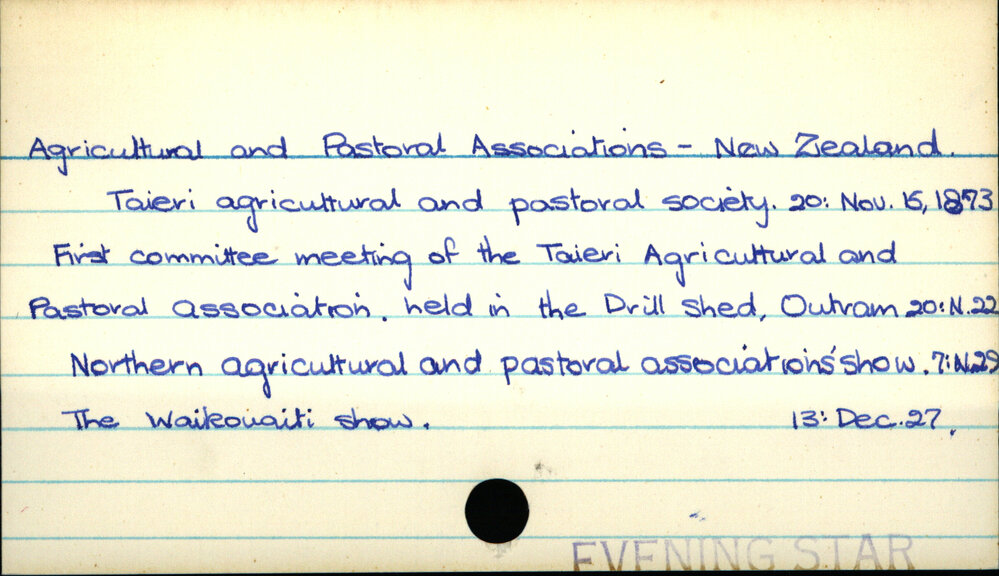 Agricultural and Pastoral Associations - New Zealand.
Taieri agricultural and pastoral society. 20: Nov. 15, 1873
First committee meeting of the Taieri Agricultural and
Pastoral association. held in the Drill shed, Outram 20: N.22
Northern agricultural and pastoral associations' show. 7: N.29
The Waikouaiti show. 13: Dec. 27.
EVENING STAR